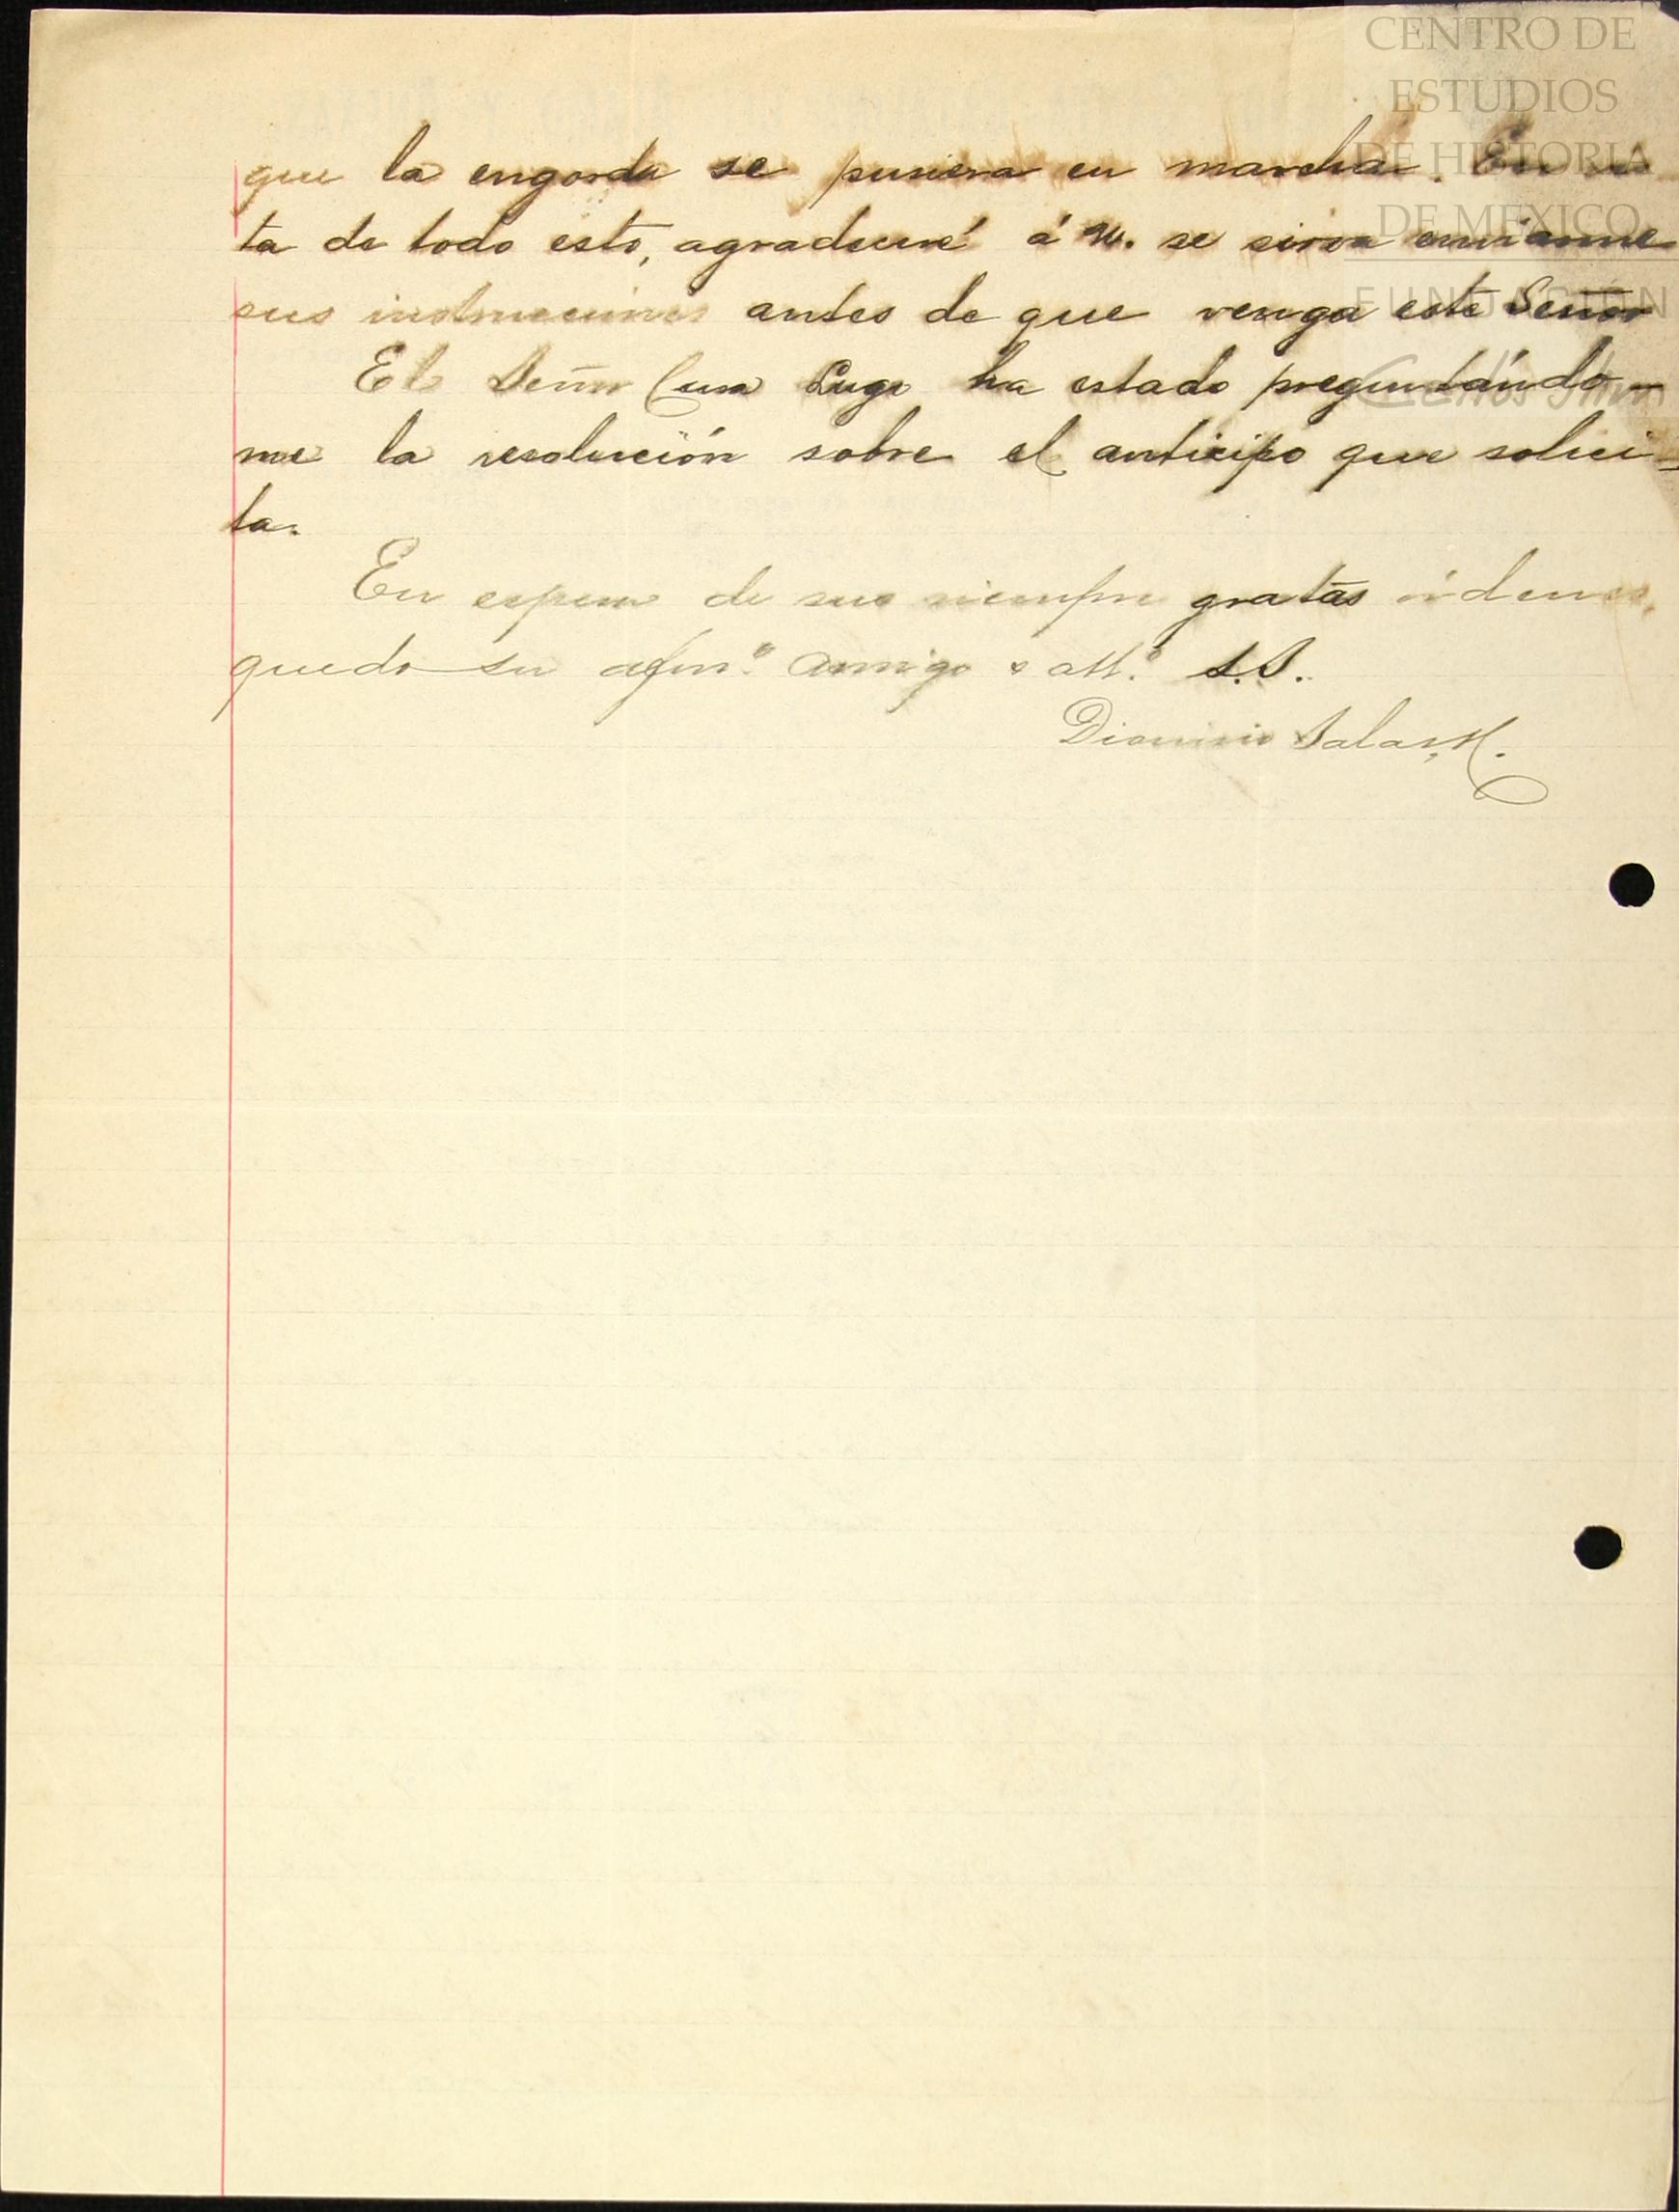 CENTRO DE
ESTUDIOS
DE HISTORIA
DE MÉXICO
FUNDACIÓN
Carlos Slim
que la engorda se pusiera en marcha. En vis
ta de todo esto, agradeceré á U. se sirva enviarme
sus instrucciones antes de que venga este Señor
El Señor Cura Lugo ha estado preguntándo-
me la resolución sobre el anticipo que solici-
ta.
En espera de sus siempre gratas órdenes,
quedo su afmo. amigo y atto. S.S.
Dionisio Salas, H.